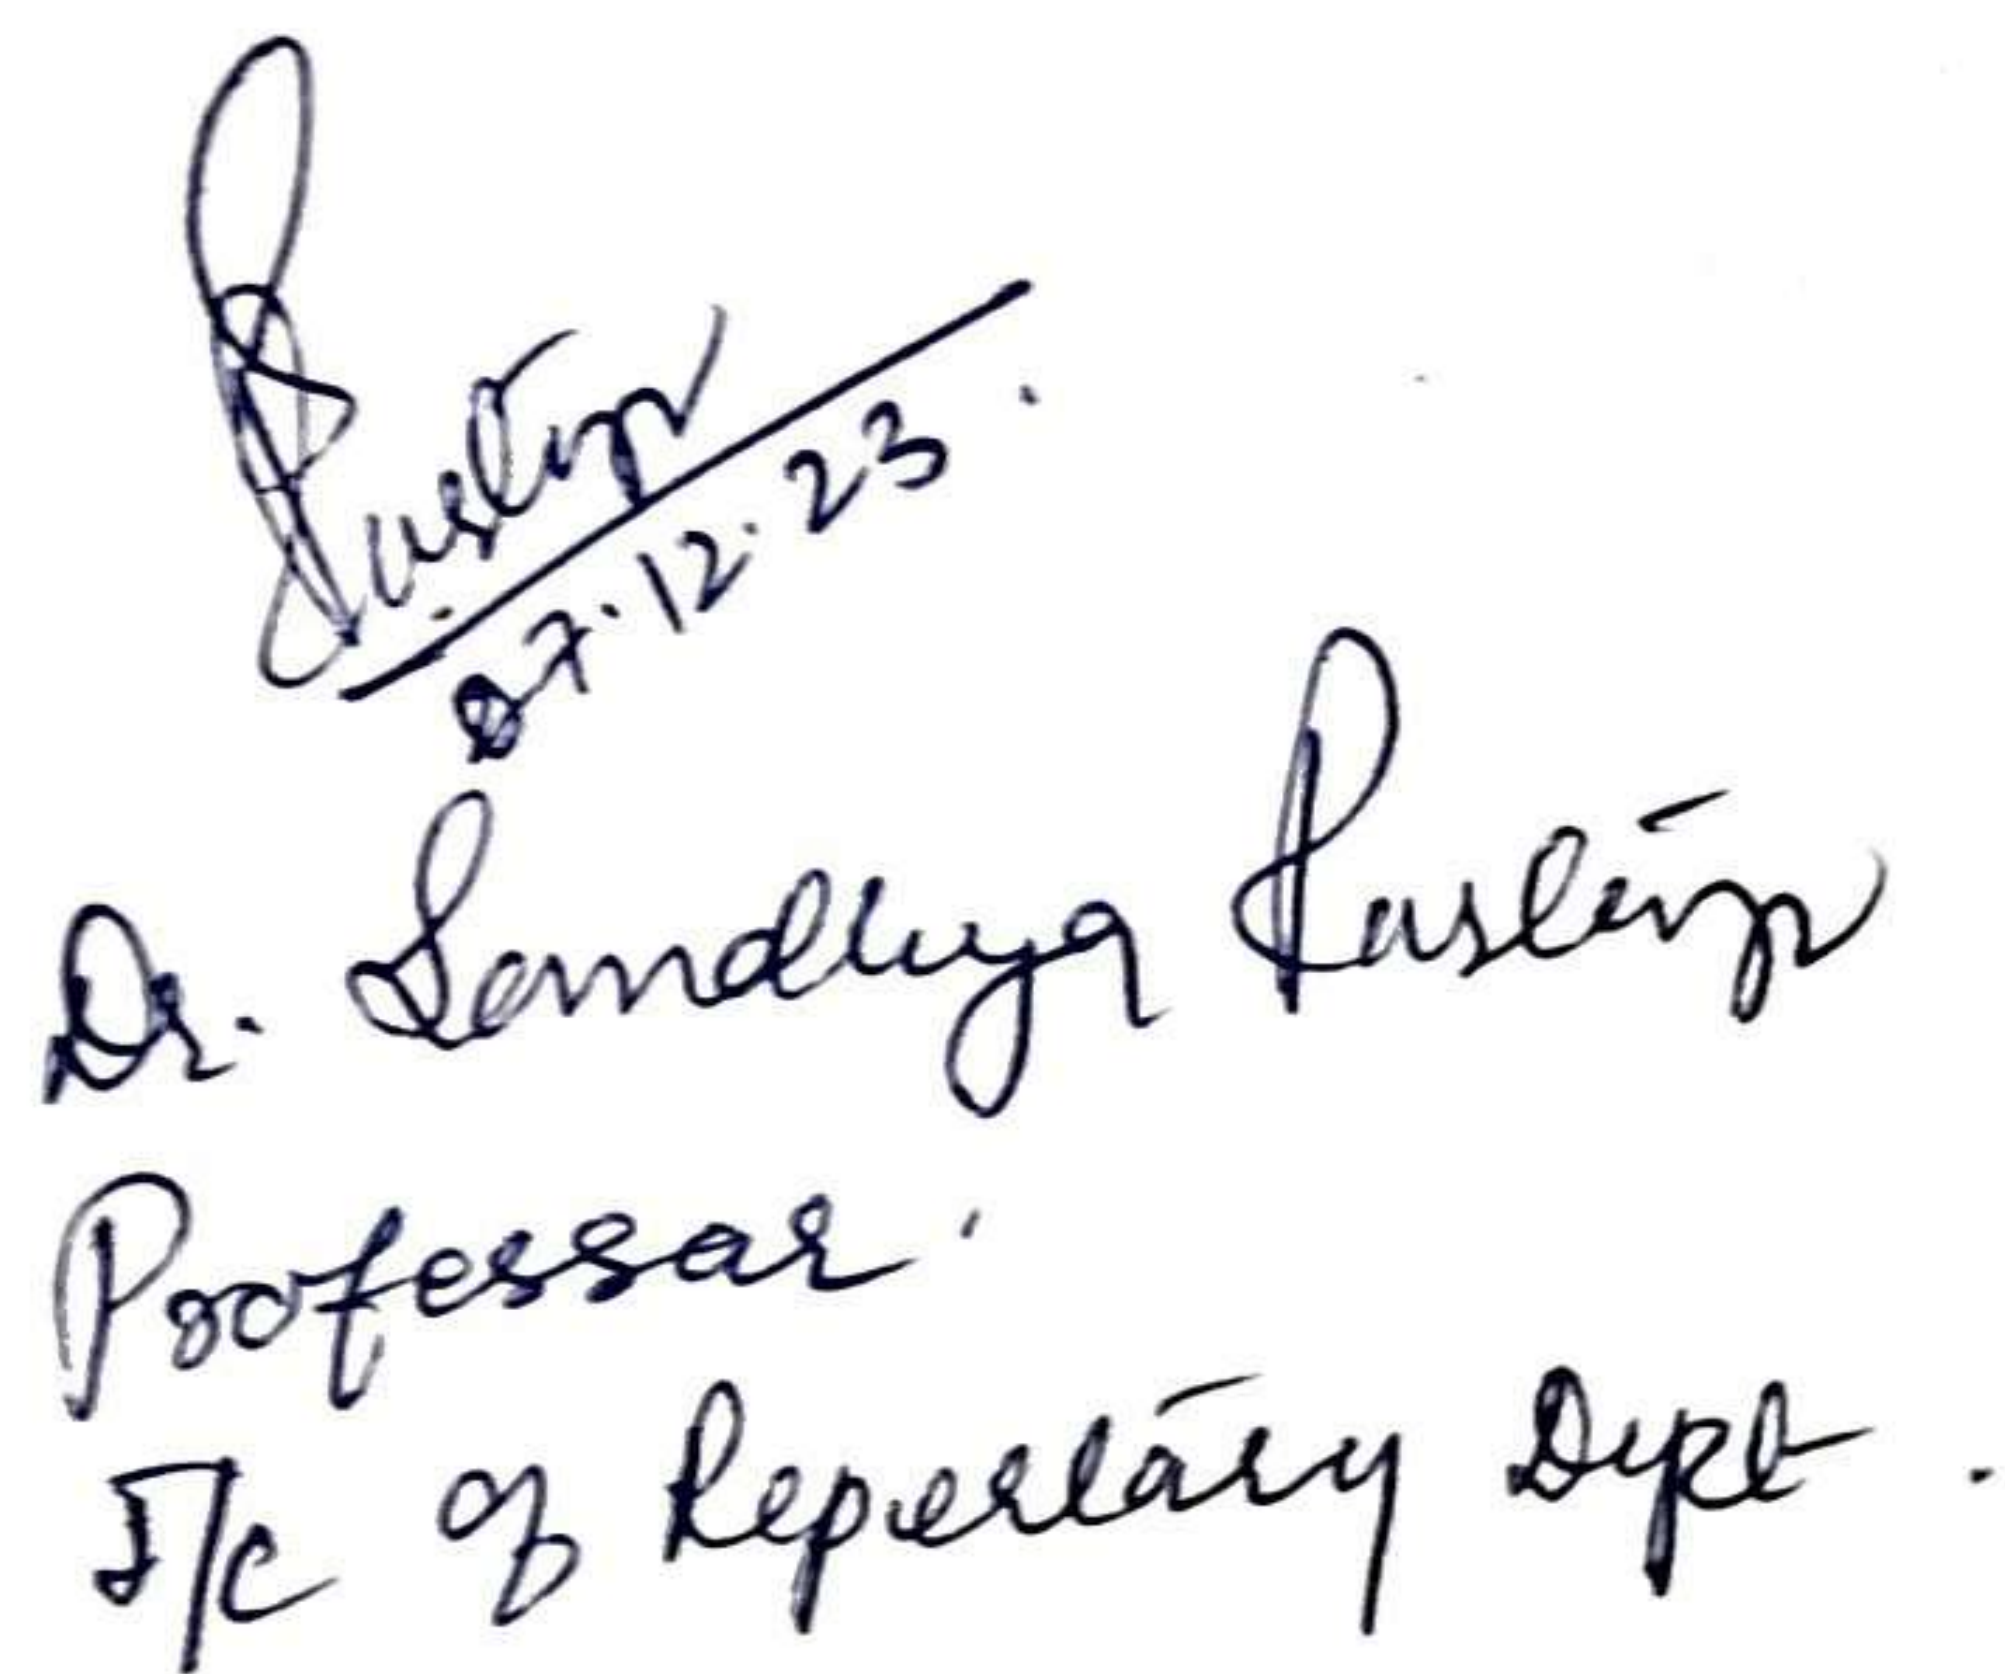 Rastogi
07.12.23
Dr. Sandhya Rastogi
Professor.
I/C of Repertory Dept.